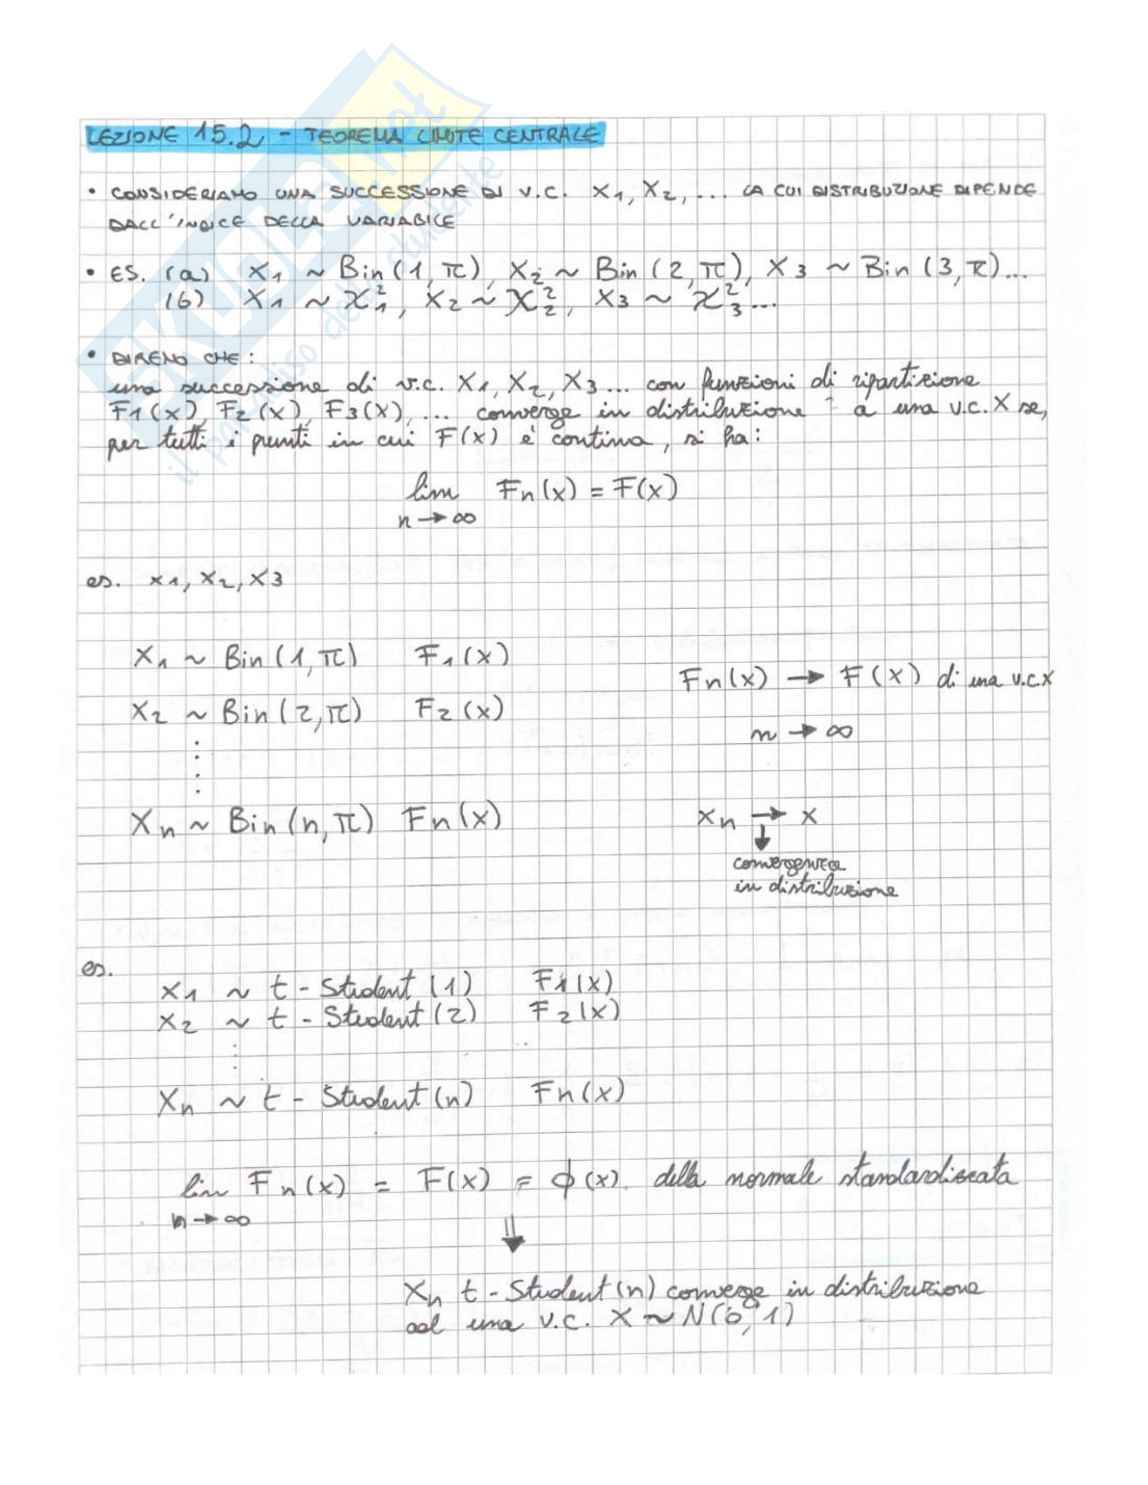 LEZIONE 15.2 - TEOREMA LIMITE CENTRALE
• CONSIDERIAMO UNA SUCCESSIONE DI V.C. X1, X2, ... LA CUI DISTRIBUZIONE DIPENDE
DALL'INDICE DELLA VARIABILE
• ES. (a) X1 ~ Bin (1, π), X2 ~ Bin (2, π), X3 ~ Bin (3, π)...
(b) X1 ~ χ²1, X2 ~ χ²2, X3 ~ χ²3...
• DIREMO CHE:
una successione di v.c. X1, X2, X3... con funzioni di ripartizione
F1(x), F2(x), F3(x), ... converge in distribuzione a una v.c. X se,
per tutti i punti in cui F(x) è continua, si ha:
lim Fn(x) = F(x)
n → ∞
es. X1, X2, X3
X1 ~ Bin (1, π) F1(x)
Fn(x) → F(x) di una v.c. X
X2 ~ Bin (2, π) F2(x)
n → ∞
Xn ~ Bin (n, π) Fn(x)
Xn → X
↓
convergenza
in distribuzione
es.
X1 ~ t - Student (1) F1(x)
X2 ~ t - Student (2) F2(x)
Xn ~ t - Student (n) Fn(x)
lim Fn(x) = F(x) = ϕ(x) della normale standardizzata
n → ∞
⇓
Xn t - Student (n) converge in distribuzione
ad una v.c. X ~ N(0, 1)
SKUOLA.net
il paradiso dello studente